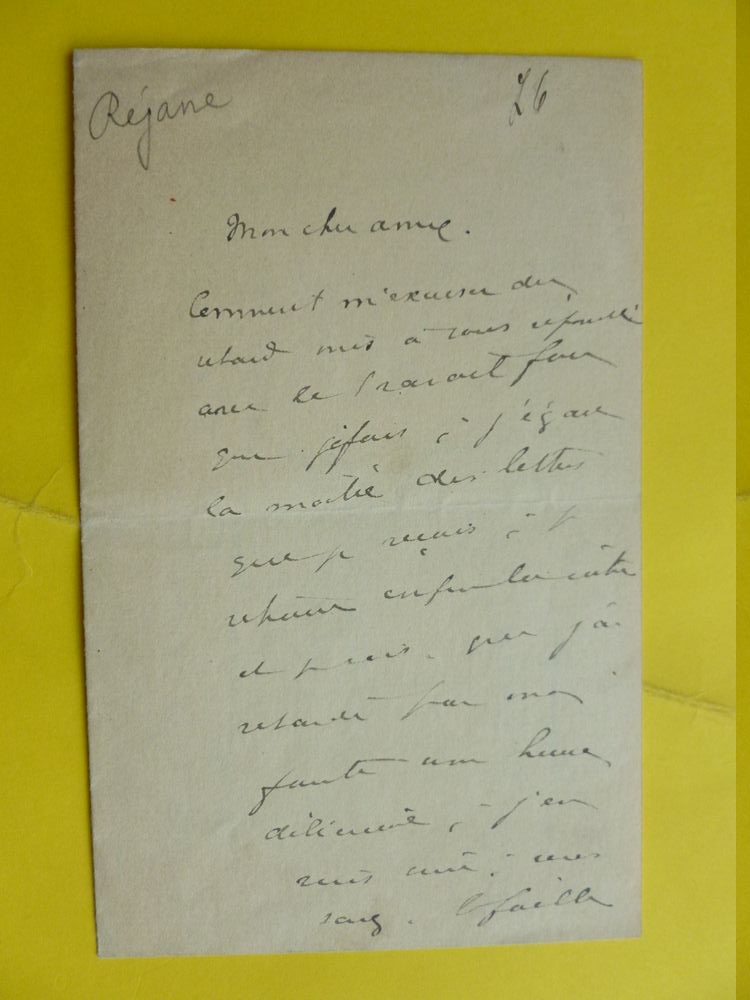 Réjane
26
Mon cher ami.
Comment m'excuser du
retard mis à vous répondre
avec le travail fou
que je fais, j'égare
la moitié des lettres
que je reçois, je
retrouve enfin la vôtre
et je vois que j'ai
retardé par ma
faute une heure
délicieuse, j'en
suis
sang.